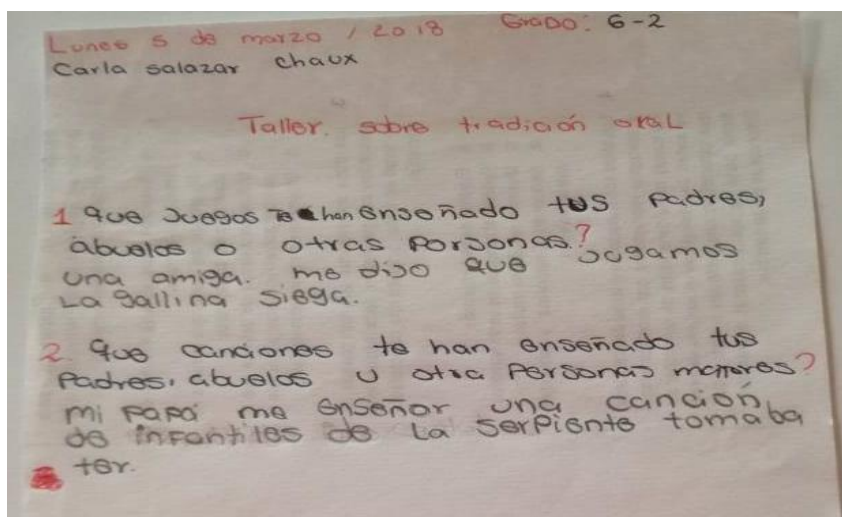 Lunes 5 de marzo / 2018 Grado: 6-2
Carla salazar chaux
Taller. sobre tradición oral
1 que Juegos te han enseñado tus padres,
abuelos o otras personas?
una amiga. me dijo que jugamos
La gallina siega.
2. que canciones te han enseñado tus
Padres, abuelos u otra personas mayores?
mi papá me enseñor una canción
de infantiles de la serpiente tomaba
ter.